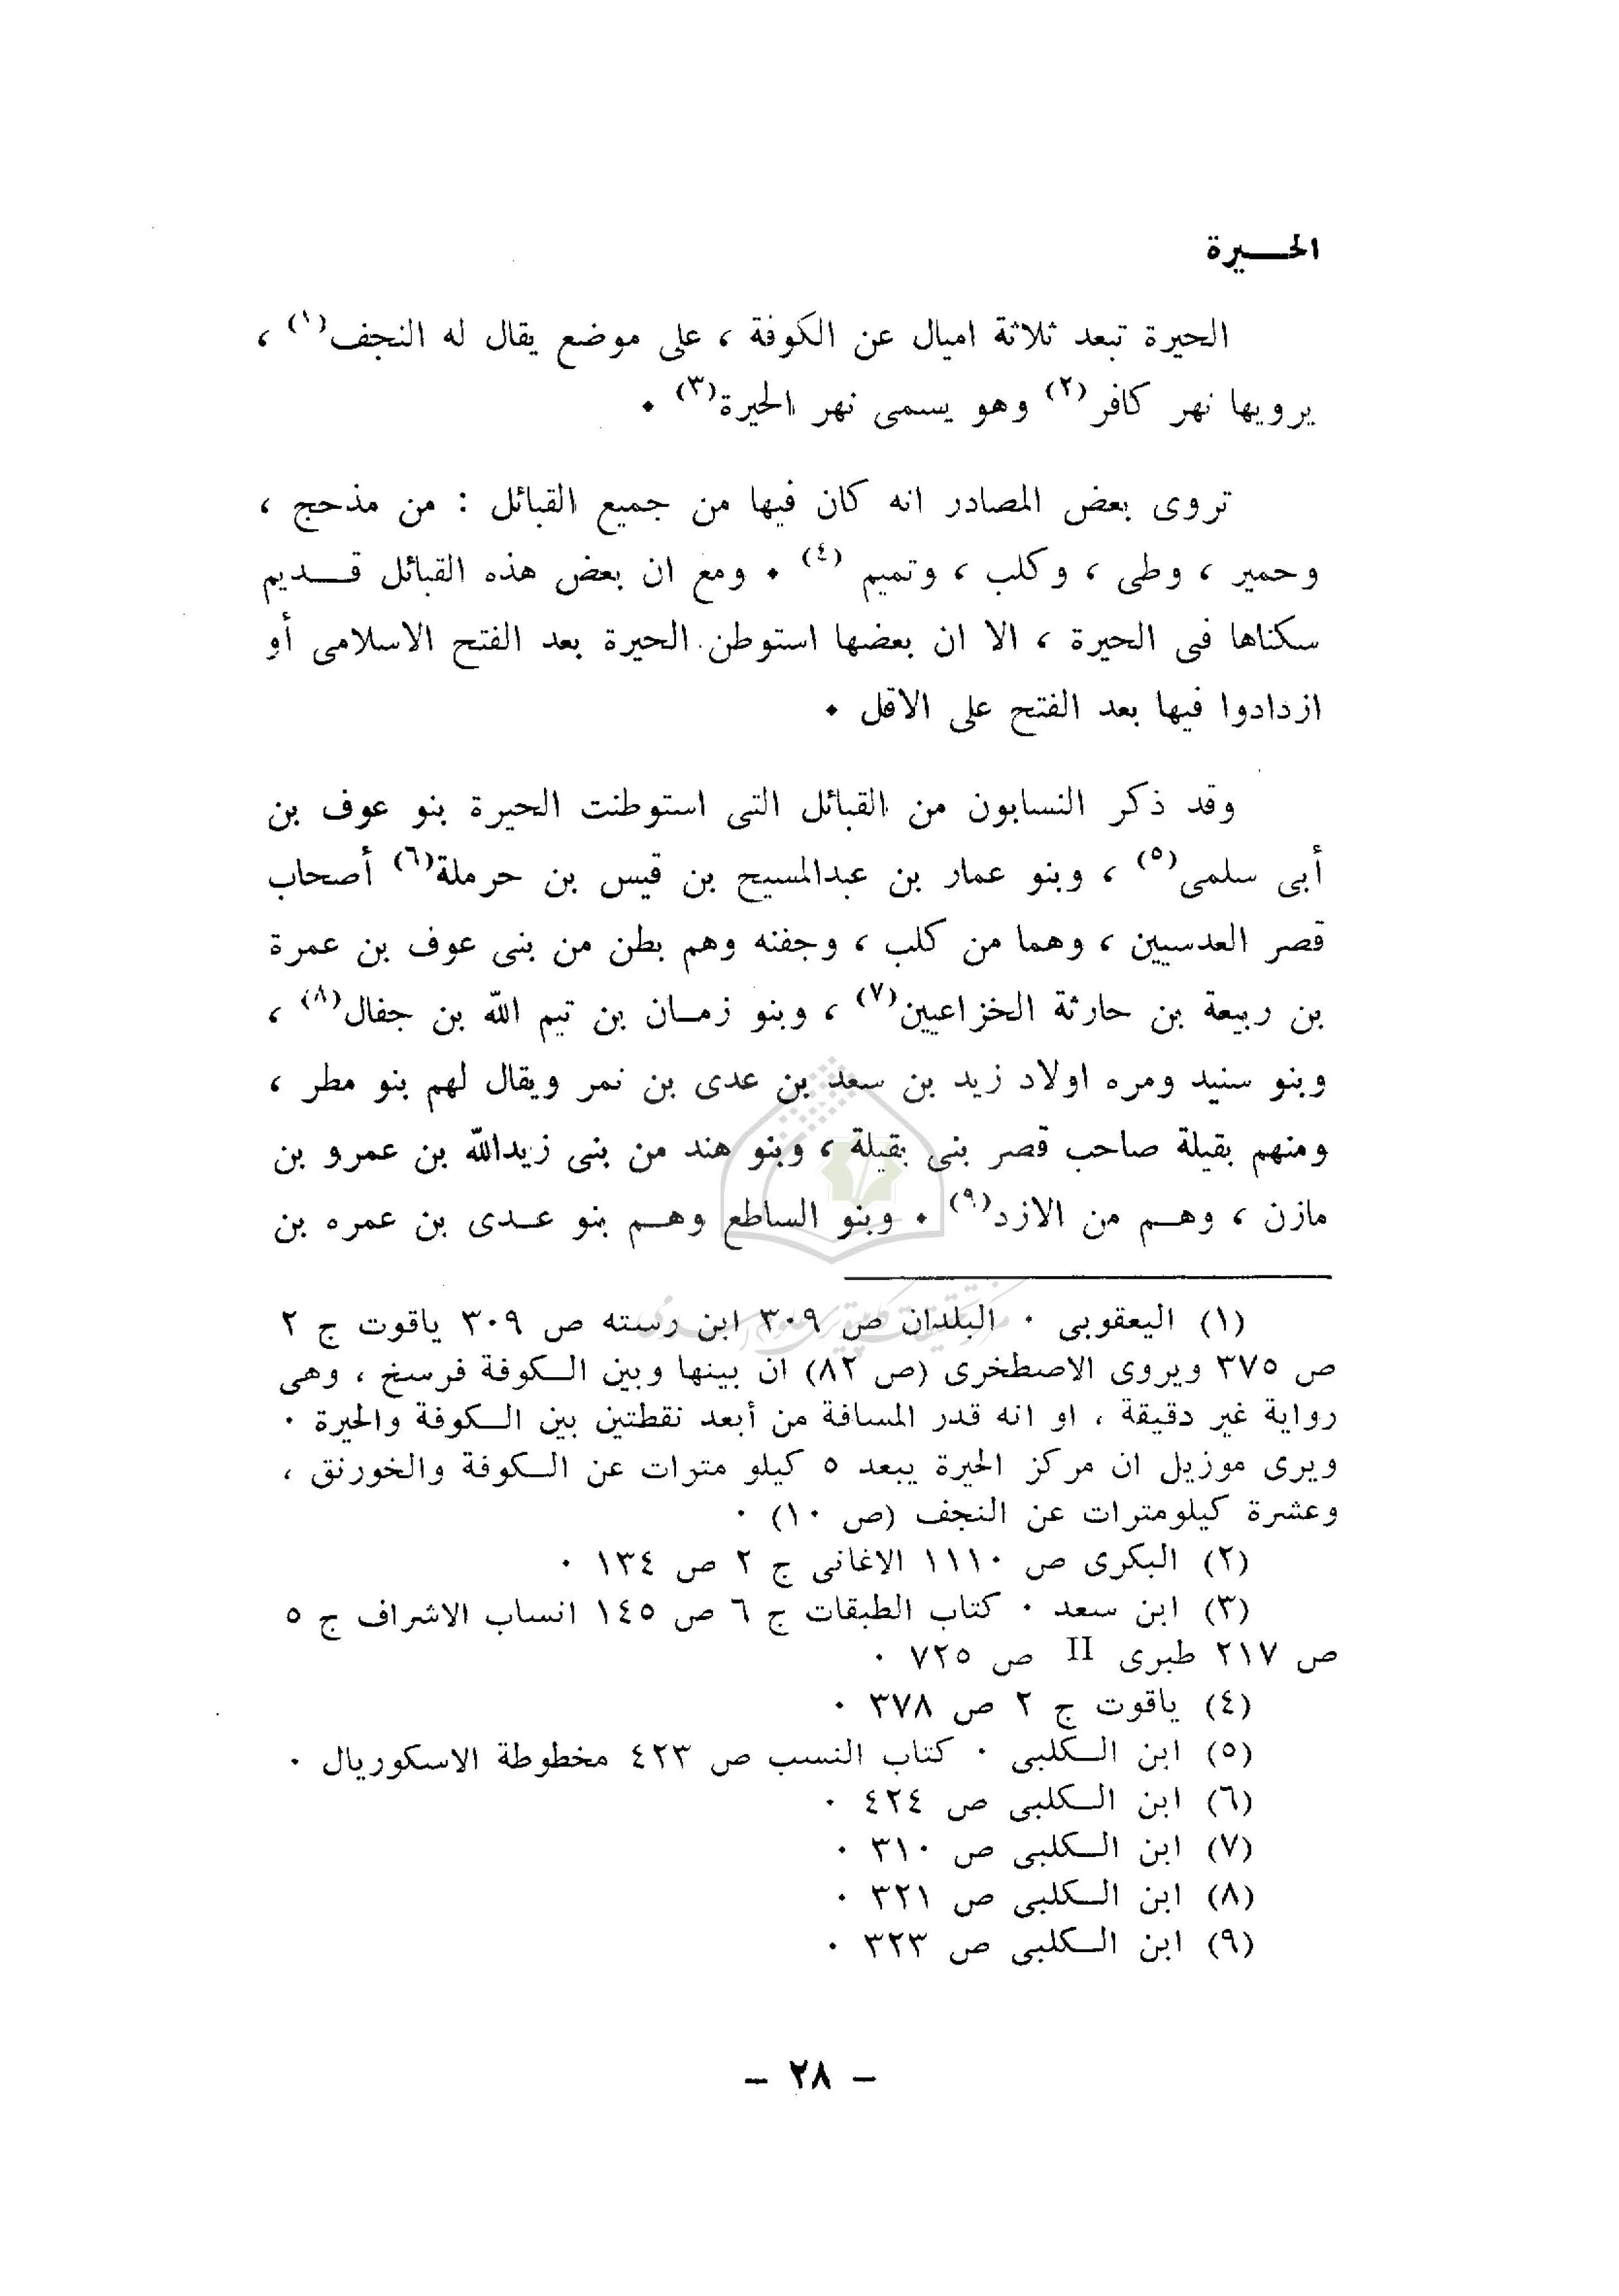 الحـــيرة
الحيرة تبعد ثلاثة اميال عن الكوفة ، على موضع يقال له النجف(١) ،
يرويها نهر كافر(٢) وهو يسمى نهر الحيرة(٣) ٠
تروى بعض المصادر انه كان فيها من جميع القبائل : من مذحج ،
وحمير ، وطى ، وكلب ، وتميم (٤) ٠ ومع ان بعض هذه القبائل قـــديم
سكناها فى الحيرة ، الا ان بعضها استوطن الحيرة بعد الفتح الاسلامى أو
ازدادوا فيها بعد الفتح على الاقل ٠
وقد ذكر النسابون من القبائل التى استوطنت الحيرة بنو عوف بن
أبى سلمى(٥) ، وبنو عمار بن عبدالمسيح بن قيس بن حرملة(٦) أصحاب
قصر العدسيين ، وهما من كلب ، وجفنه وهم بطن من بنى عوف بن عمرة
بن ربيعة بن حارثة الخزاعيين(٧) ، وبنو زمــان بن تيم الله بن جفال(٨) ،
وبنو سنيد ومره اولاد زيد بن سعد بن عدى بن نمر ويقال لهم بنو مطر ،
ومنهم بقيلة صاحب قصر بنى بقيلة ، وبنو هند من بنى زيدالله بن عمرو بن
مازن ، وهــم من الازد(٩) ٠ وبنو الساطع وهــم بنو عــدى بن عمره بن
(١) اليعقوبى ٠ البلدان ص ٣٠٩ ابن رسته ص ٣٠٩ ياقوت ج ٢
ص ٣٧٥ ويروى الاصطخرى (ص ٨٢) ان بينها وبين الــكوفة فرسخ ، وهى
رواية غير دقيقة ، او انه قدر المسافة من أبعد نقطتين بين الــكوفة والحيرة ٠
ويرى موزيل ان مركز الحيرة يبعد ٥ كيلو مترات عن الــكوفة والخورنق ،
وعشرة كيلومترات عن النجف (ص ١٠) ٠
(٢) البكرى ص ١١١٠ الاغانى ج ٢ ص ١٣٤ ٠
(٣) ابن سعد ٠ كتاب الطبقات ج ٦ ص ١٤٥ انساب الاشراف ج ٥
ص ٢١٧ طبرى II ص ٧٢٥ ٠
(٤) ياقوت ج ٢ ص ٣٧٨ ٠
(٥) ابن الــكلبى ٠ كتاب النسب ص ٤٢٣ مخطوطة الاسكوريال ٠
(٦) ابن الــكلبى ص ٤٢٤ ٠
(٧) ابن الــكلبى ص ٣١٠ ٠
(٨) ابن الــكلبى ص ٣٢١ ٠
(٩) ابن الــكلبى ص ٣٢٣ ٠
– ٢٨ –